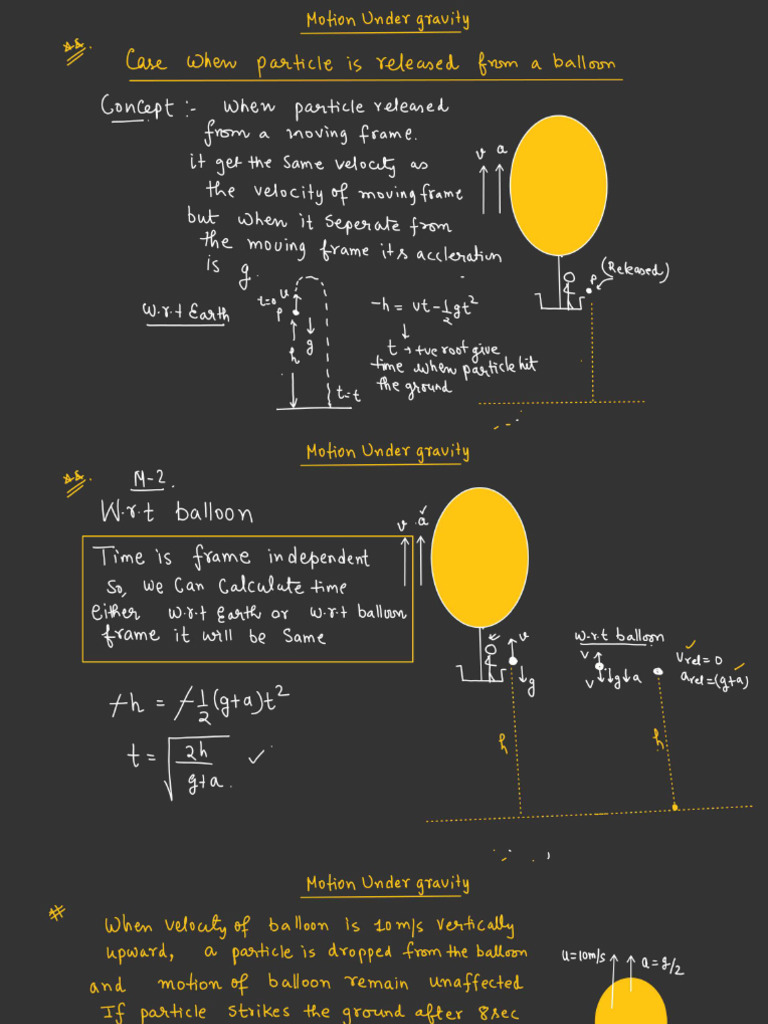 Motion Under gravity
Case when particle is released from a balloon
Concept :- when particle released
from a moving frame.
it get the same velocity as
the velocity of moving frame
but when it seperate from
the moving frame its accleration
is g.
v a
P (Released)
w.r.t Earth
t=0 u
P
g
h
t=t
-h = vt-1/2gt²
↓
t → +ve root give
time when particle hit
the ground
Motion Under gravity
M-2.
W.r.t balloon
Time is frame independent
So, we can calculate time
either w.r.t Earth or w.r.t balloon
frame it will be same
v a
v
g
h
w.r.t balloon
v
v g a
Vrel = 0
arel = (g+a)
h
-h = -1/2(g+a)t²
t = √2h/g+a.
Motion Under gravity
# When velocity of balloon is 10m/s vertically
upward, a particle is dropped from the balloon
and motion of balloon remain unaffected
If particle strikes the ground after 8sec
u=10m/s a=g/2